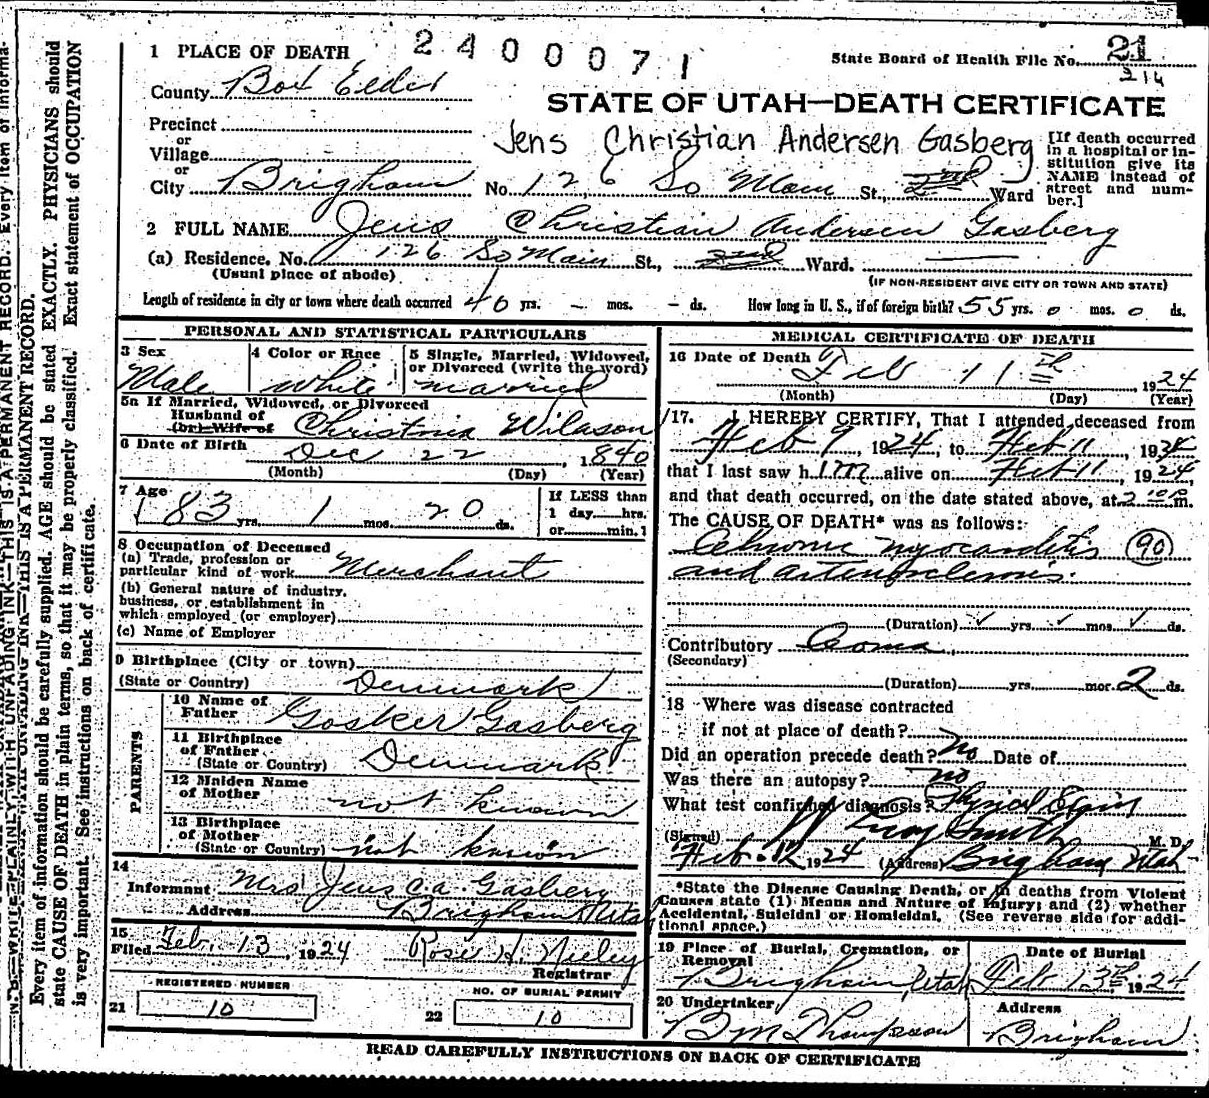 2400071
State Board of Health File No. 21
214
1 PLACE OF DEATH
County Box Elder
STATE OF UTAH—DEATH CERTIFICATE
Precinct
or
Village
or
City Brigham No. 126 So Main St., 2nd Ward
Jens Christian Andersen Gasberg
[If death occurred
in a hospital or in-
stitution give its
NAME instead of
street and num-
ber.]
2 FULL NAME Jens Christian Andersen Gasberg
(a) Residence, No. 126 So Main St., 2nd Ward.
(Usual place of abode)
(IF NON-RESIDENT GIVE CITY OR TOWN AND STATE)
Length of residence in city or town where death occurred 40 yrs. - mos. - ds. How long in U. S., if of foreign birth? 55 yrs. 0 mos. 0 ds.
PERSONAL AND STATISTICAL PARTICULARS
3 Sex
Male
4 Color or Race
White
5 Single, Married, Widowed,
or Divorced (write the word)
married
5a If Married, Widowed, or Divorced
Husband of
(or) Wife of Christina Wilason
6 Date of Birth Dec 22, 1840
(Month) (Day) (Year)
7 Age
83 yrs. 1 mos. 20 ds.
If LESS than
1 day......hrs.
or............min.]
8 Occupation of Deceased
(a) Trade, profession or
particular kind of work Merchant
(b) General nature of industry,
business, or establishment in
which employed (or employer)
(c) Name of Employer
9 Birthplace (City or town)
(State or Country) Denmark
PARENTS
10 Name of
Father Gosker Gasberg
11 Birthplace
of Father
(State or Country) Denmark
12 Maiden Name
of Mother not known
13 Birthplace
of Mother
(State or Country) not known
14
Informant Mrs Jens C.A. Gasberg
Address Brigham Utah
15
Filed Feb. 13, 1924 Rose H. Neeley
Registrar
REGISTERED NUMBER
21 10
NO. OF BURIAL PERMIT
22 10
MEDICAL CERTIFICATE OF DEATH
16 Date of Death Feb 11th, 1924
(Month) (Day) (Year)
17. I HEREBY CERTIFY, That I attended deceased from
Feb 9, 1924, to Feb 11, 1924
that I last saw him alive on Feb 11, 1924,
and that death occurred, on the date stated above, at 2 10 p m.
The CAUSE OF DEATH* was as follows:
Chronic myocarditis (90)
and arteriosclerosis.
(Duration) yrs. mos. ds.
Contributory Coma
(Secondary)
(Duration) yrs. mos. 2 ds.
18 Where was disease contracted
if not at place of death?
Did an operation precede death? no Date of
Was there an autopsy? no
What test confirmed diagnosis? Physical
(Signed) W Troy Smith M. D.
Feb. 12 1924 (Address) Brigham Utah
*State the Disease Causing Death, or in deaths from Violent
Causes state (1) Means and Nature of Injury; and (2) whether
Accidental, Suicidal or Homicidal. (See reverse side for addi-
tional space.)
19 Place of Burial, Cremation, or
Removal
Brigham, Utah
Date of Burial
Feb 13th 1924
20 Undertaker,
B M Thompson
Address
Brigham
READ CAREFULLY INSTRUCTIONS ON BACK OF CERTIFICATE
N. B.—WRITE PLAINLY WITH UNFADING INK—THIS IS A PERMANENT RECORD. Every item of informa-
THIS IS A PERMANENT RECORD.
Every item of information should be carefully supplied. AGE should be stated EXACTLY. PHYSICIANS should
state CAUSE OF DEATH in plain terms, so that it may be properly classified. Exact statement of OCCUPATION
is very important. See instructions on back of certificate.